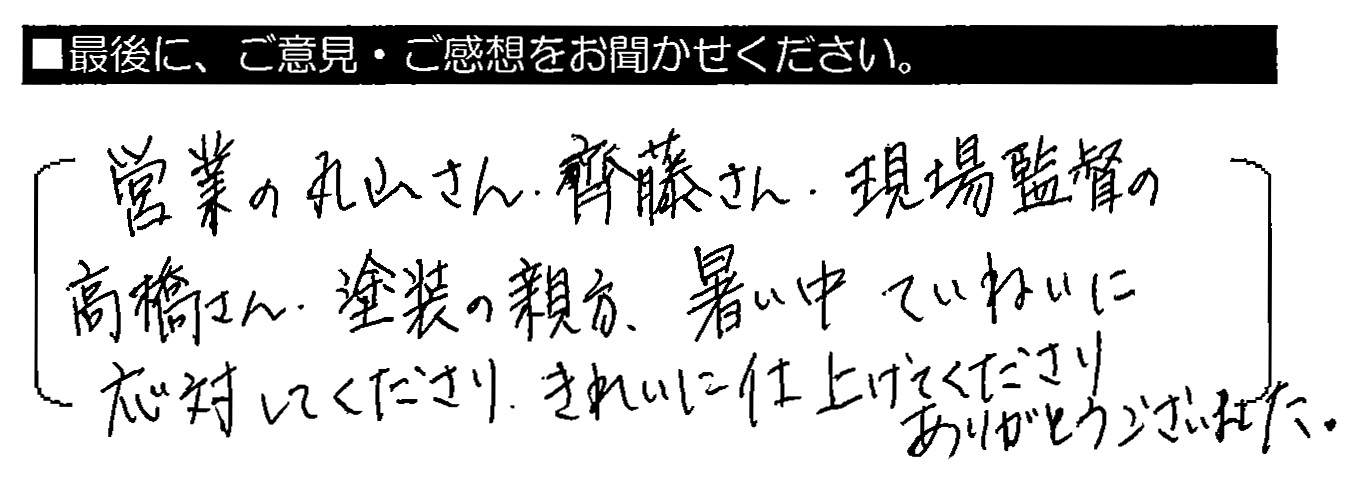 ■最後に、ご意見・ご感想をお聞かせください。
営業の丸山さん・齊藤さん・現場監督の
高橋さん・塗装の親方、暑い中ていねいに
応対してくださり、きれいに仕上げてくださり
ありがとうございました。